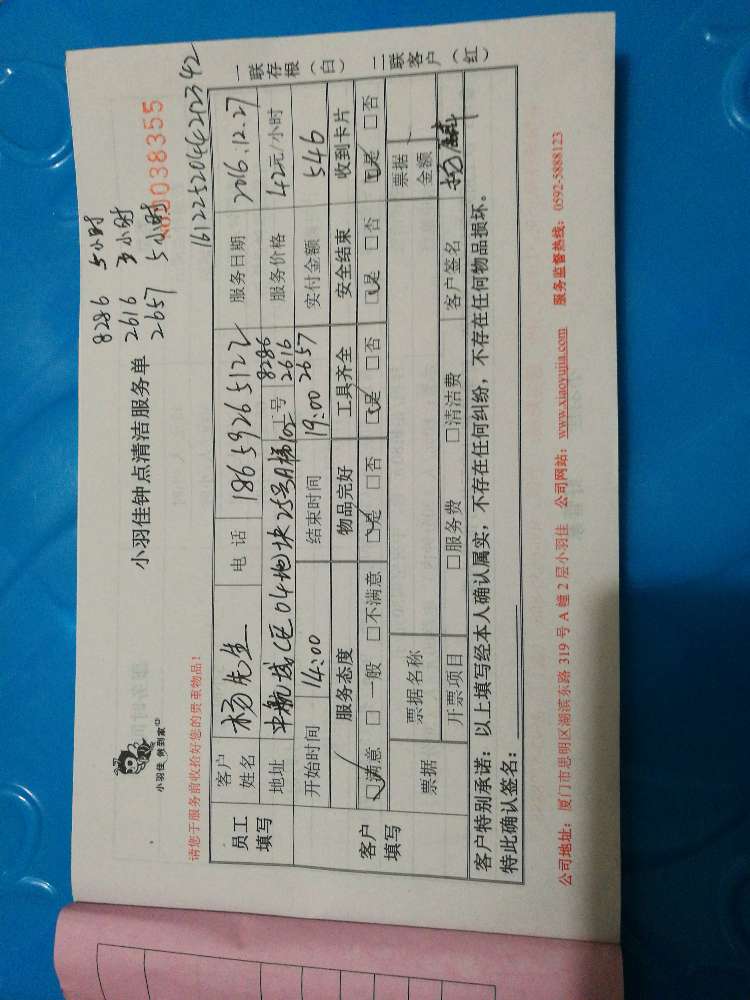 8286 5小时
2616 3小时
2657 5小时
小羽佳 做到家
小羽佳钟点清洁服务单
No.0038355
请您于服务前收拾好您的贵重物品!
1612252044212342
员工填写
客户姓名 杨先生 电 话 18659265122 服务日期 2016.12.27
地址 中航城C区04地块25号A梯102 工号 8286 2616 2657 服务价格 42元/小时
开始时间 14:00 结束时间 19:00 实付金额 546
客户填写
服务态度 物品完好 工具齐全 安全结束 收到卡片
☑满意 □一般 □不满意 ☑是 □否 ☑是 □否 ☑是 □否 ☑是 □否
票据 票据名称 票据金额
开票项目 □服务费 □清洁费 客户签名
客户特别承诺:以上填写经本人确认属实,不存在任何纠纷,不存在任何物品损坏。
特此确认签名:
一联存根(白) 二联客户(红)
公司地址:厦门市思明区湖滨东路 319 号 A 幢 2 层小羽佳 公司网站:www.xiaoyujia.com 服务监督热线:0592-5888123